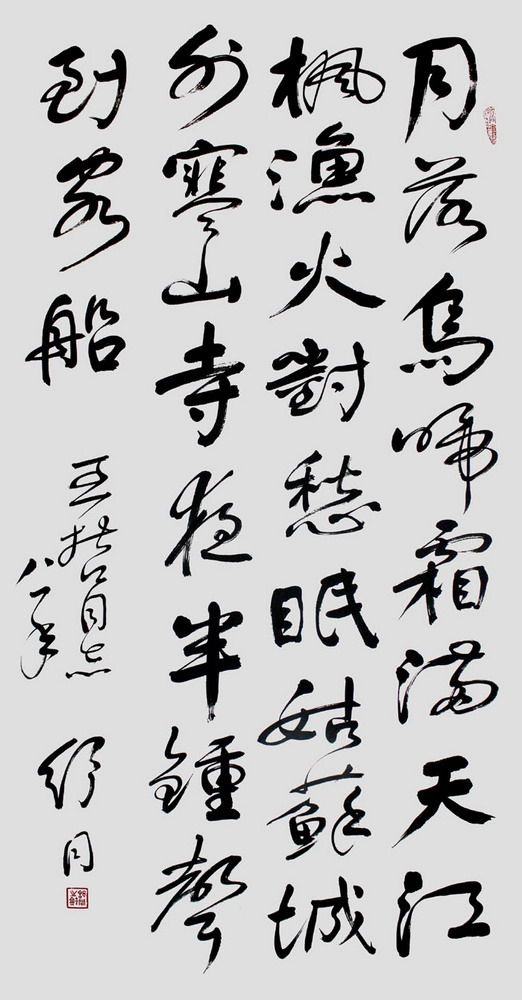 月落烏啼霜滿天江
楓漁火對愁眠姑蘇城
外寒山寺夜半鍾聲
到客船
王同志
八一年
舒同